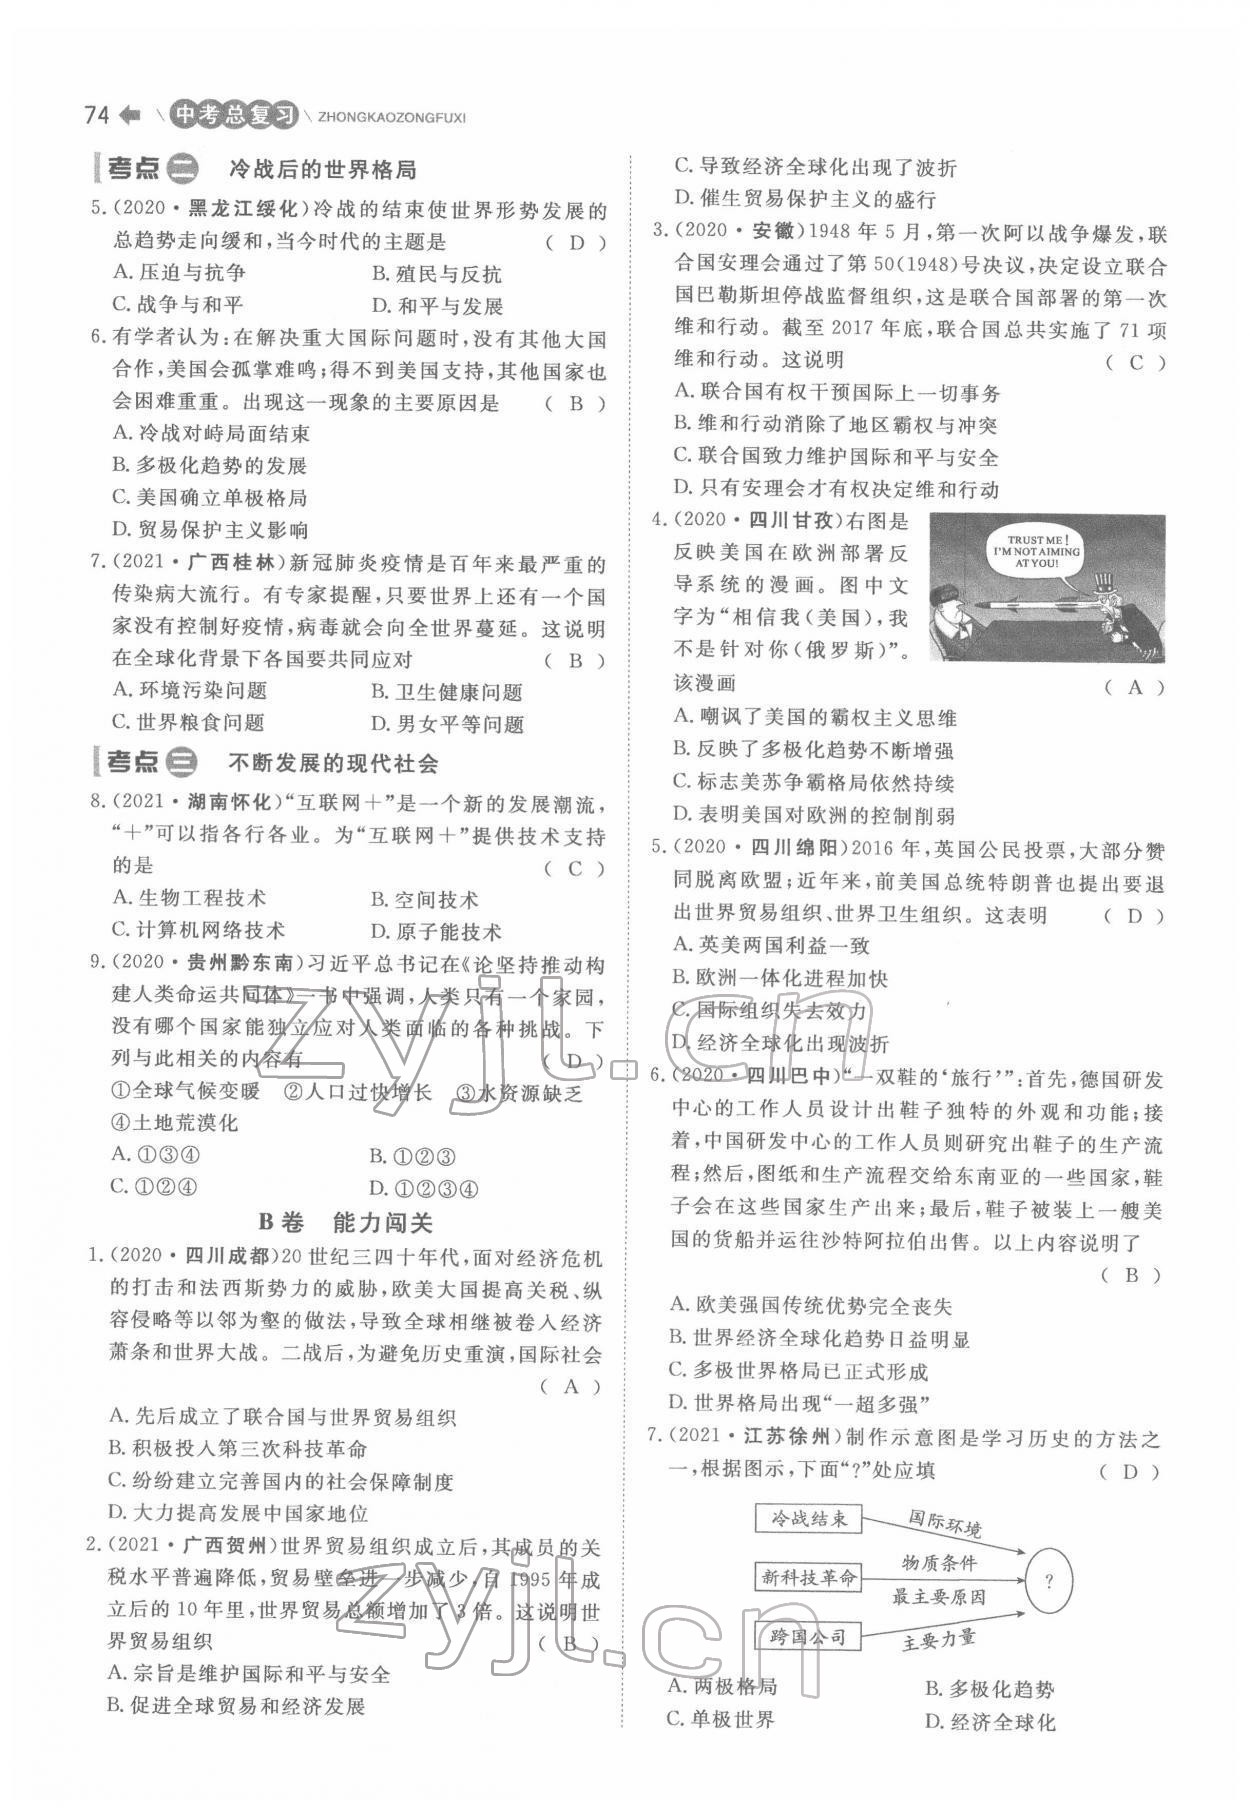 74 中考总复习 ZHONGKAOZONGFUXI
考点二 冷战后的世界格局
5.(2020·黑龙江绥化)冷战的结束使世界形势发展的
总趋势走向缓和,当今时代的主题是 ( D )
A.压迫与抗争 B.殖民与反抗
C.战争与和平 D.和平与发展
6.有学者认为:在解决重大国际问题时,没有其他大国
合作,美国会孤掌难鸣;得不到美国支持,其他国家也
会困难重重。出现这一现象的主要原因是 ( B )
A.冷战对峙局面结束
B.多极化趋势的发展
C.美国确立单极格局
D.贸易保护主义影响
7.(2021·广西桂林)新冠肺炎疫情是百年来最严重的
传染病大流行。有专家提醒,只要世界上还有一个国
家没有控制好疫情,病毒就会向全世界蔓延。这说明
在全球化背景下各国要共同应对 ( B )
A.环境污染问题 B.卫生健康问题
C.世界粮食问题 D.男女平等问题
考点三 不断发展的现代社会
8.(2021·湖南怀化)“互联网+”是一个新的发展潮流,
“+”可以指各行各业。为“互联网+”提供技术支持
的是 ( C )
A.生物工程技术 B.空间技术
C.计算机网络技术 D.原子能技术
9.(2020·贵州黔东南)习近平总书记在《论坚持推动构
建人类命运共同体》一书中强调,人类只有一个家园,
没有哪个国家能独立应对人类面临的各种挑战。下
列与此相关的内容有 ( D )
①全球气候变暖 ②人口过快增长 ③水资源缺乏
④土地荒漠化
A.①③④ B.①②③
C.①②④ D.①②③④
B卷 能力闯关
1.(2020·四川成都)20世纪三四十年代,面对经济危机
的打击和法西斯势力的威胁,欧美大国提高关税、纵
容侵略等以邻为壑的做法,导致全球相继被卷入经济
萧条和世界大战。二战后,为避免历史重演,国际社会
( A )
A.先后成立了联合国与世界贸易组织
B.积极投入第三次科技革命
C.纷纷建立完善国内的社会保障制度
D.大力提高发展中国家地位
2.(2021·广西贺州)世界贸易组织成立后,其成员的关
税水平普遍降低,贸易壁垒进一步减少,自1995年成
立后的10年里,世界贸易总额增加了3倍。这说明世
界贸易组织 ( B )
A.宗旨是维护国际和平与安全
B.促进全球贸易和经济发展
C.导致经济全球化出现了波折
D.催生贸易保护主义的盛行
3.(2020·安徽)1948年5月,第一次阿以战争爆发,联
合国安理会通过了第50(1948)号决议,决定设立联合
国巴勒斯坦停战监督组织,这是联合国部署的第一次
维和行动。截至2017年底,联合国总共实施了71项
维和行动。这说明 ( C )
A.联合国有权干预国际上一切事务
B.维和行动消除了地区霸权与冲突
C.联合国致力维护国际和平与安全
D.只有安理会才有权决定维和行动
4.(2020·四川甘孜)右图是
反映美国在欧洲部署反
导系统的漫画。图中文
字为“相信我(美国),我
不是针对你(俄罗斯)”。
该漫画 ( A )
TRUST ME!
I'M NOT AIMING
AT YOU!
A.嘲讽了美国的霸权主义思维
B.反映了多极化趋势不断增强
C.标志美苏争霸格局依然持续
D.表明美国对欧洲的控制削弱
5.(2020·四川绵阳)2016年,英国公民投票,大部分赞
同脱离欧盟;近年来,前美国总统特朗普也提出要退
出世界贸易组织、世界卫生组织。这表明 ( D )
A.英美两国利益一致
B.欧洲一体化进程加快
C.国际组织失去效力
D.经济全球化出现波折
6.(2020·四川巴中)“一双鞋的‘旅行’”:首先,德国研发
中心的工作人员设计出鞋子独特的外观和功能;接
着,中国研发中心的工作人员则研究出鞋子的生产流
程;然后,图纸和生产流程交给东南亚的一些国家,鞋
子会在这些国家生产出来;最后,鞋子被装上一艘美
国的货船并运往沙特阿拉伯出售。以上内容说明了
( B )
A.欧美强国传统优势完全丧失
B.世界经济全球化趋势日益明显
C.多极世界格局已正式形成
D.世界格局出现“一超多强”
7.(2021·江苏徐州)制作示意图是学习历史的方法之
一,根据图示,下面“?”处应填 ( D )
冷战结束 国际环境
新科技革命 物质条件 最主要原因 ?
跨国公司 主要力量
A.两极格局 B.多极化趋势
C.单极世界 D.经济全球化
zyjl.cn
zyjl.cn